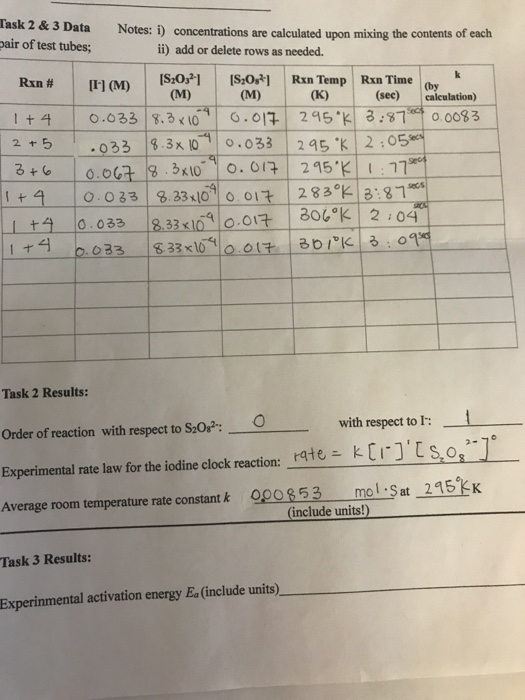 Task 2 & 3 Data Notes: i) concentrations are calculated upon mixing the contents of each
pair of test tubes; ii) add or delete rows as needed.
Rxn # [I-] (M) [S₂O₃²-] (M) [S₂O₈²-] (M) Rxn Temp (K) Rxn Time (sec) k (by calculation)
1 + 4 0.033 8.3 x 10⁻⁴ 0.017 295°K 3:87 secs 0.0083
2 + 5 .033 8.3 x 10⁻⁴ 0.033 295°K 2:05 secs
3 + 6 0.067 8.3x10⁻⁴ 0.017 295°K 1:77 secs
1 + 4 0.033 8.33x10⁻⁴ 0.017 283°K 3:87 secs
1 + 4 0.033 8.33x10⁻⁴ 0.017 306°K 2:04 secs
1 + 4 0.033 8.33x10⁻⁴ 0.017 301°K 3:09 secs
Task 2 Results:
Order of reaction with respect to S₂O₈²-: 0 with respect to I-: 1
Experimental rate law for the iodine clock reaction: rate = k[I⁻]¹[S₂O₈²⁻]⁰
Average room temperature rate constant k 0.00853 mol·S at 295°K K
(include units!)
Task 3 Results:
Experinmental activation energy Eₐ (include units)